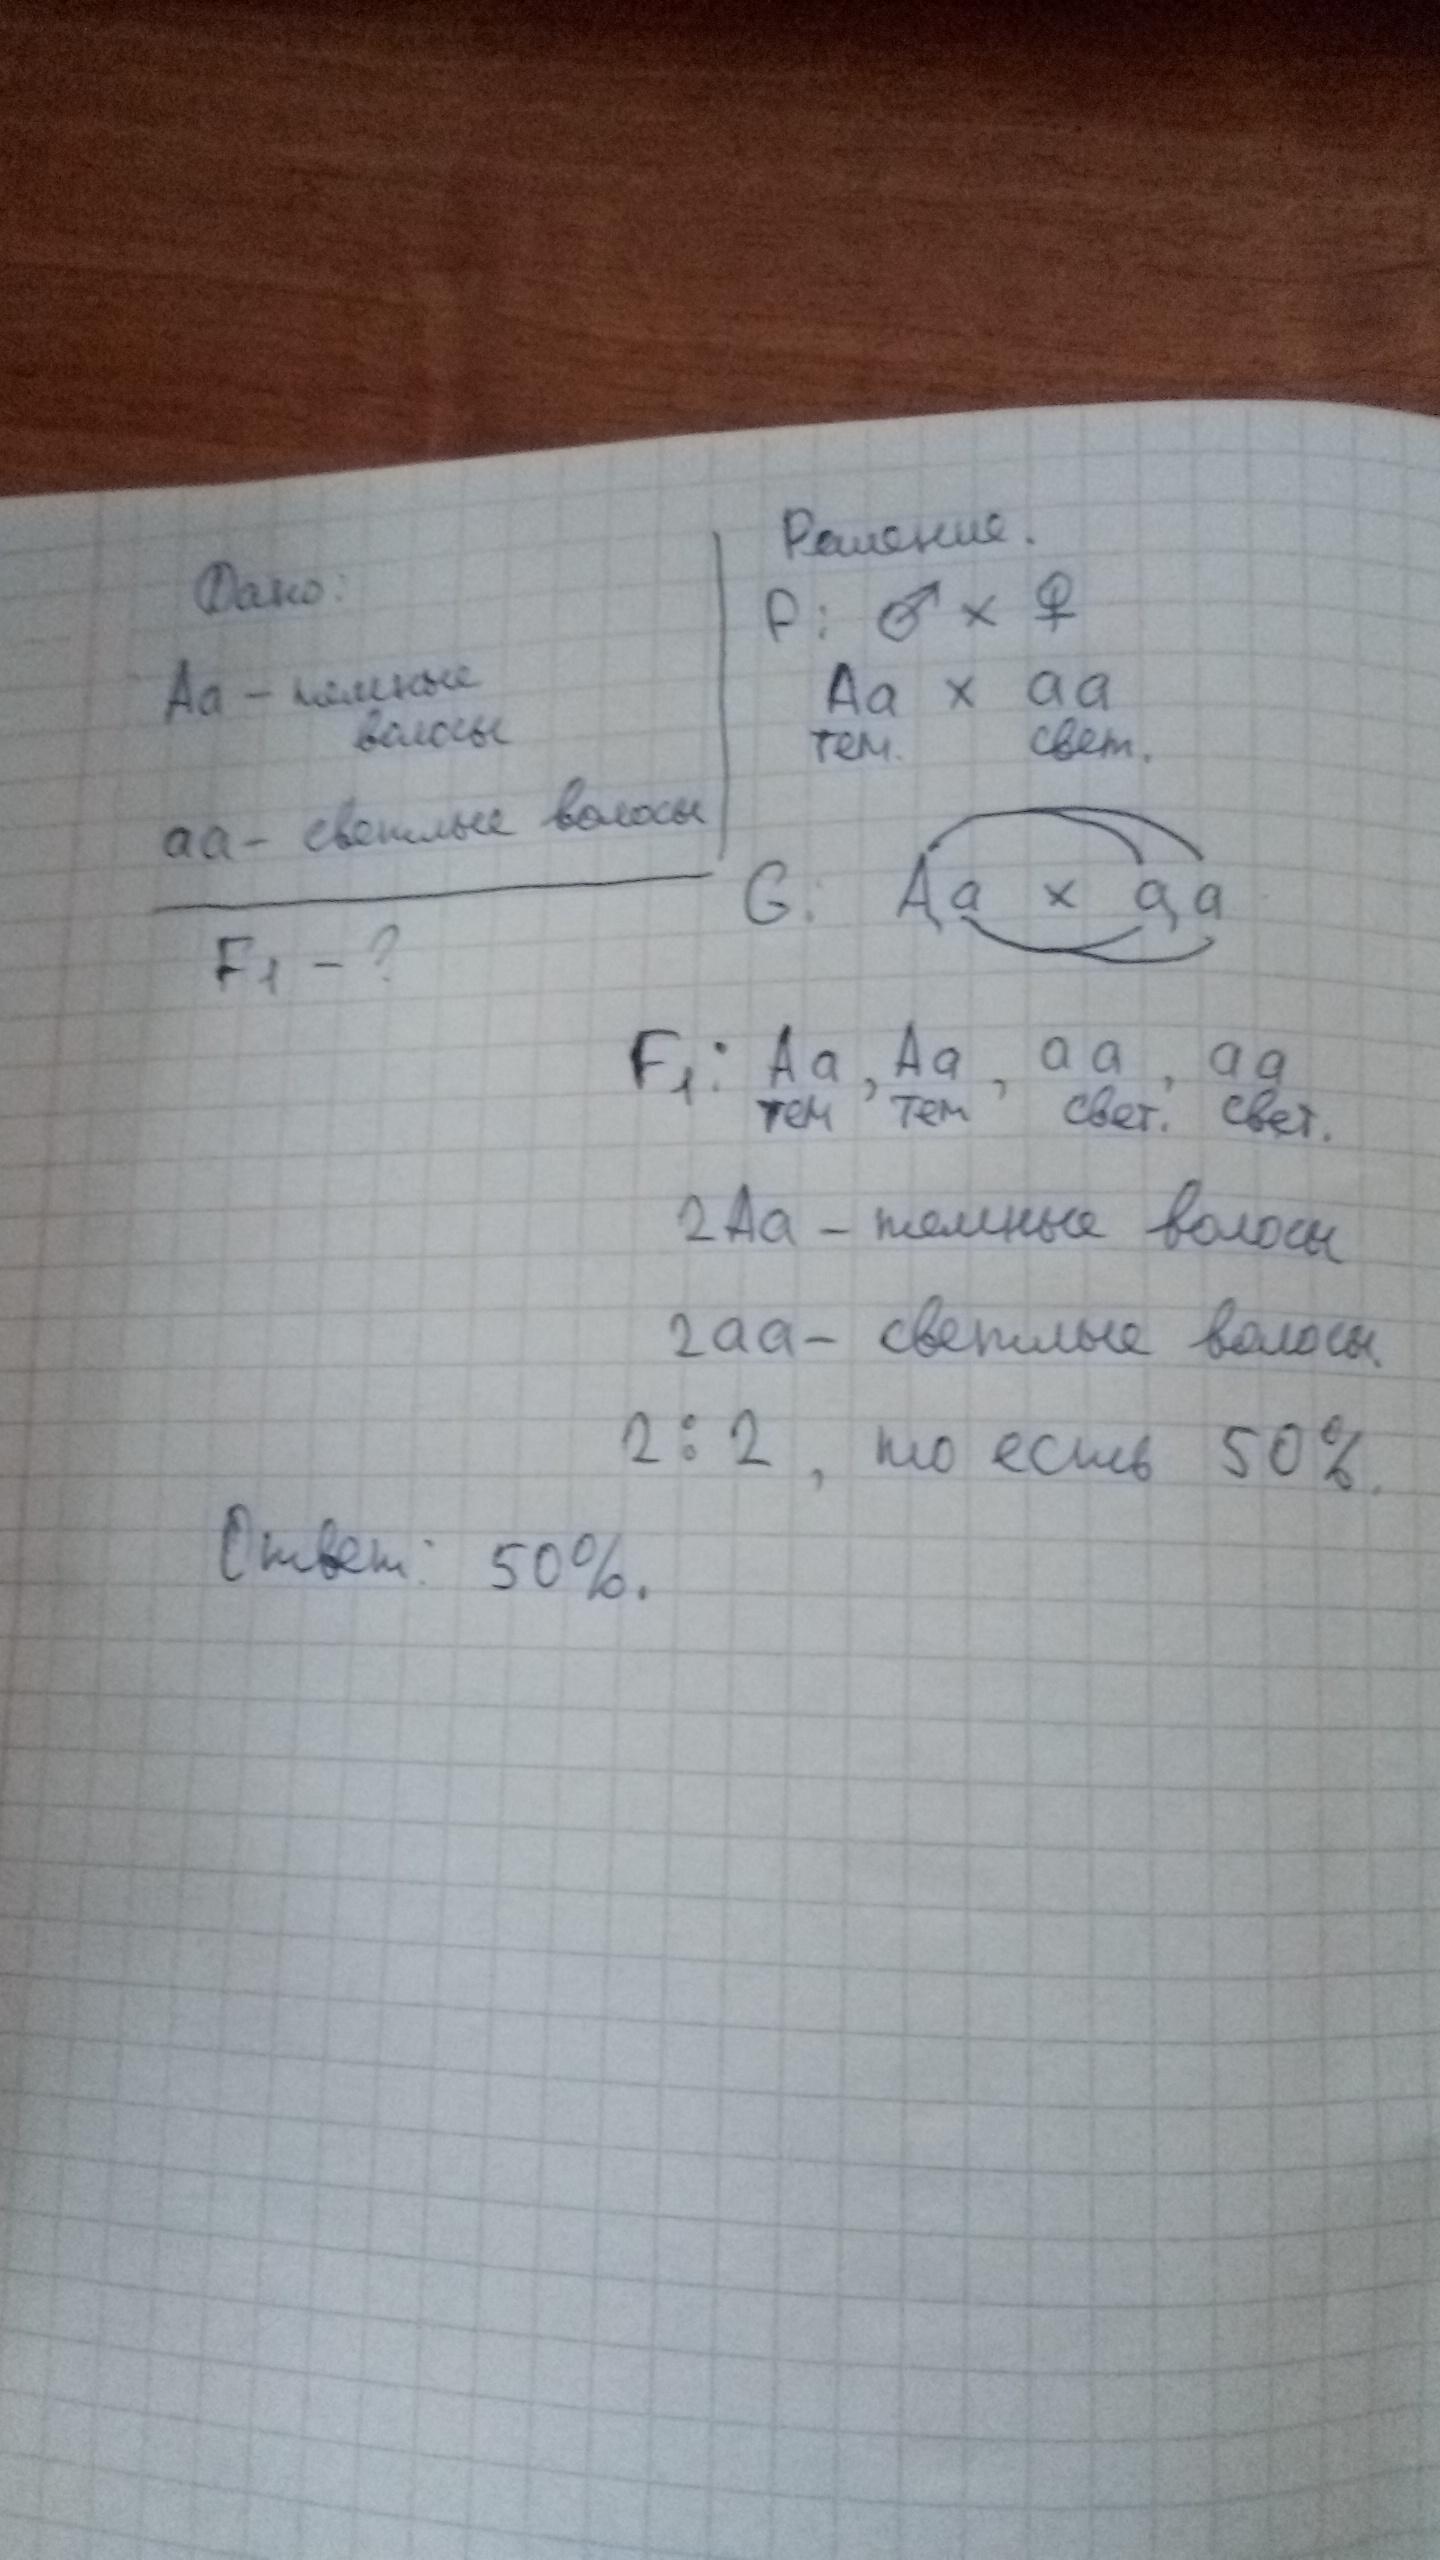 Дано:
Аа – темные
волосы
аа – светлые волосы
F1 – ?
Решение.
P: ♂ × ♀
Аа × аа
тем. свет.
G: Аа × аа
F1: Аа, Аа, аа, аа
тем тем свет. свет.
2Аа – темные волосы
2аа – светлые волосы.
2:2, то есть 50%.
Ответ: 50%.